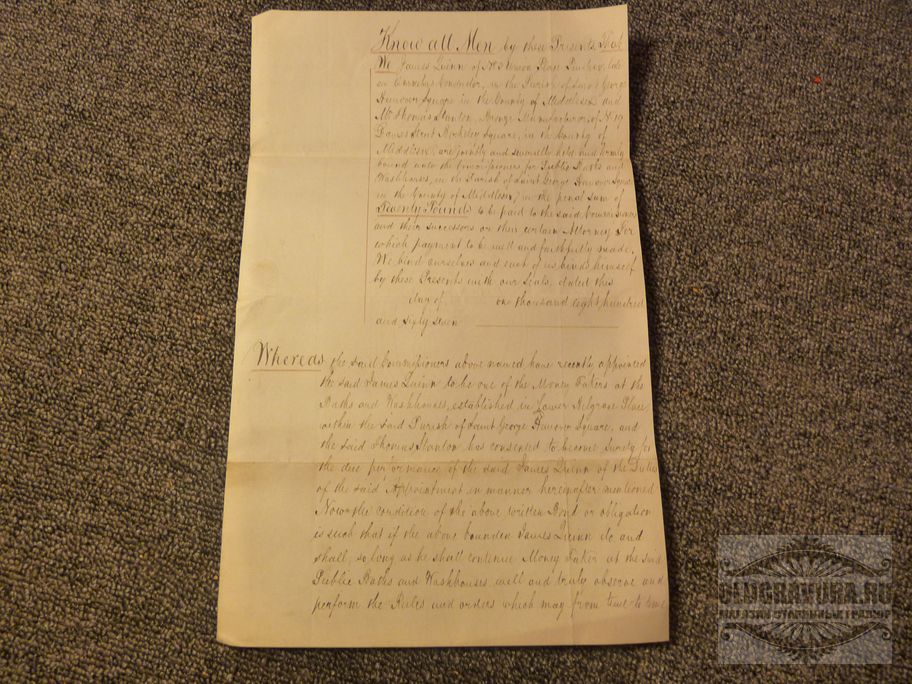 Know all Men by these Presents That
We James Quinn of No 3 Union Place Pimlico, late
an Omnibus Conductor, in the Parish of Saint George
Hanover Square in the County of Middlesex and
Mr Thomas Stanton, Bronze Manufacturer, of No 19
Davies Street Berkeley Square, in the County of
Middlesex, are jointly and severally held and firmly
bound unto the Commissioners for Public Baths and
Washhouses, in the Parish of Saint George Hanover Square
in the County of Middlesex, in the penal sum of
Twenty Pounds to be paid to the said Commissioners
and their successors or their certain Attorney For
which payment to be well and faithfully made,
We bind ourselves and each of us binds himself
by these Presents with our Seals, dated this
day of one thousand eight hundred
and sixty seven
Whereas the said Commissioners above named have recently appointed
the said James Quinn to be one of the Money Takers at the
Baths and Washhouses, established in Lower Belgrave Place,
within the said Parish of Saint George Hanover Square, and
the said Thomas Stanton has consented to become Surety for
the due performance of the said James Quinn of the Duties
of the said Appointment in manner hereinafter mentioned
Now the condition of the above written Bond or obligation
is such that if the above bounden James Quinn do and
shall, so long as he shall continue Money Taker at the said
Public Baths and Washhouses, well and truly observe and
perform the Rules and orders which may from time to time
OLDGRAVURA.RU
МАГАЗИН СТАРИННЫХ ГРАВЮР